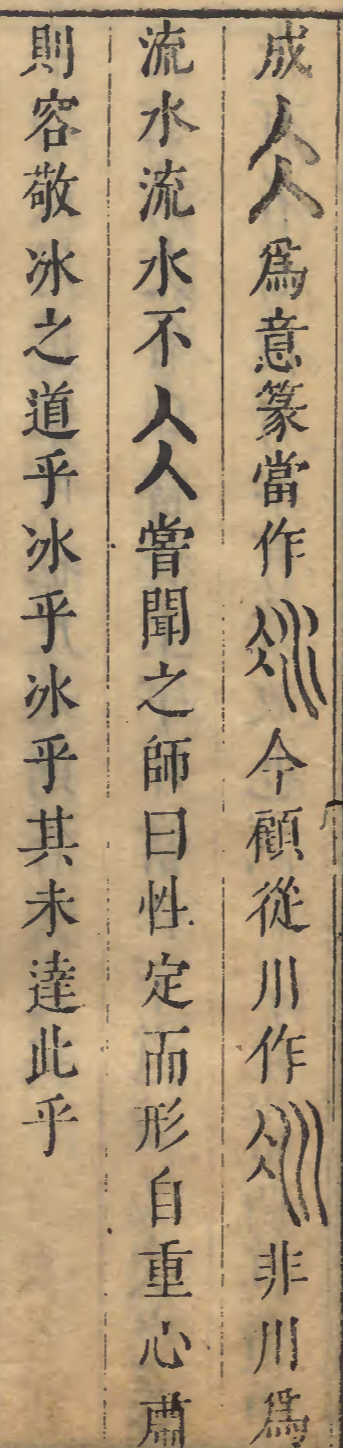 成仌爲意篆當作冰今顧從川作非川爲
流水流水不仌嘗聞之師曰性定而形自重心肅
則容敬冰之道乎冰乎冰乎其未達此乎